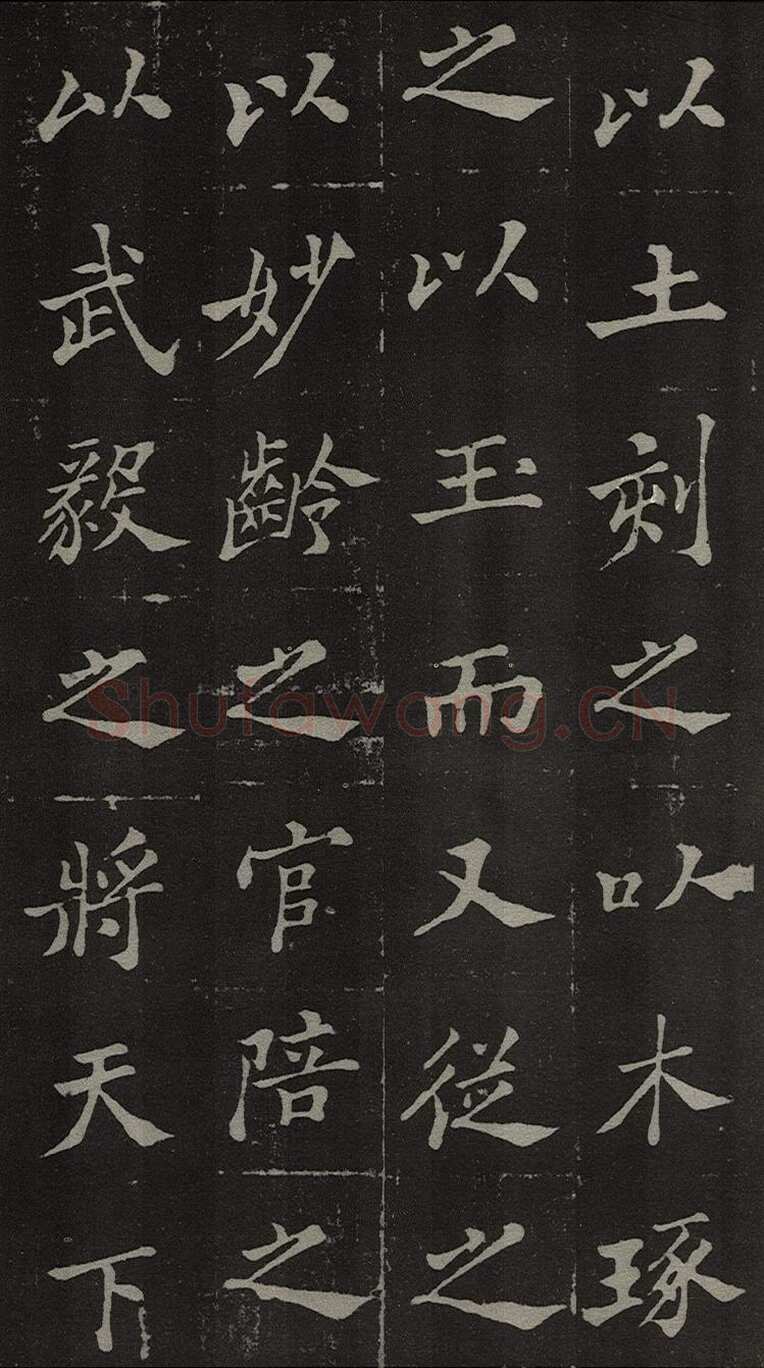 以土刻之以木琢
之以玉而又從之
以妙齡之官陪之
以武毅之將天下
Shufawang.CN